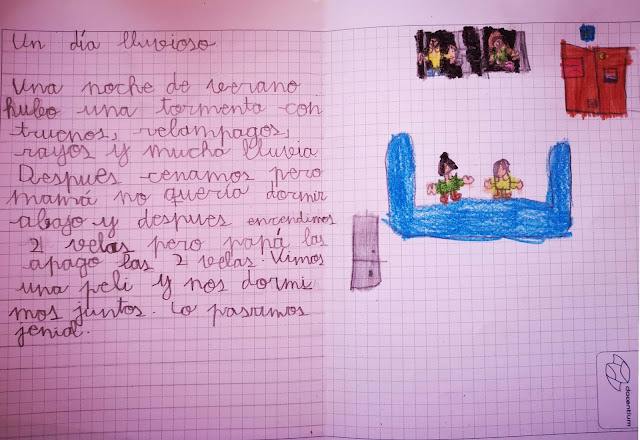 Un día lluvioso
Una noche de verano
hubo una tormenta con
truenos, relampagos,
rayos y mucha lluvia
Despues cenamos pero
mamá no quería dormir
abajo y despues encendimos
2 velas pero papá las
apago las 2 velas. Vimos
una peli y nos dormi
mos juntos. Lo pasamos
jenial.
docentrum